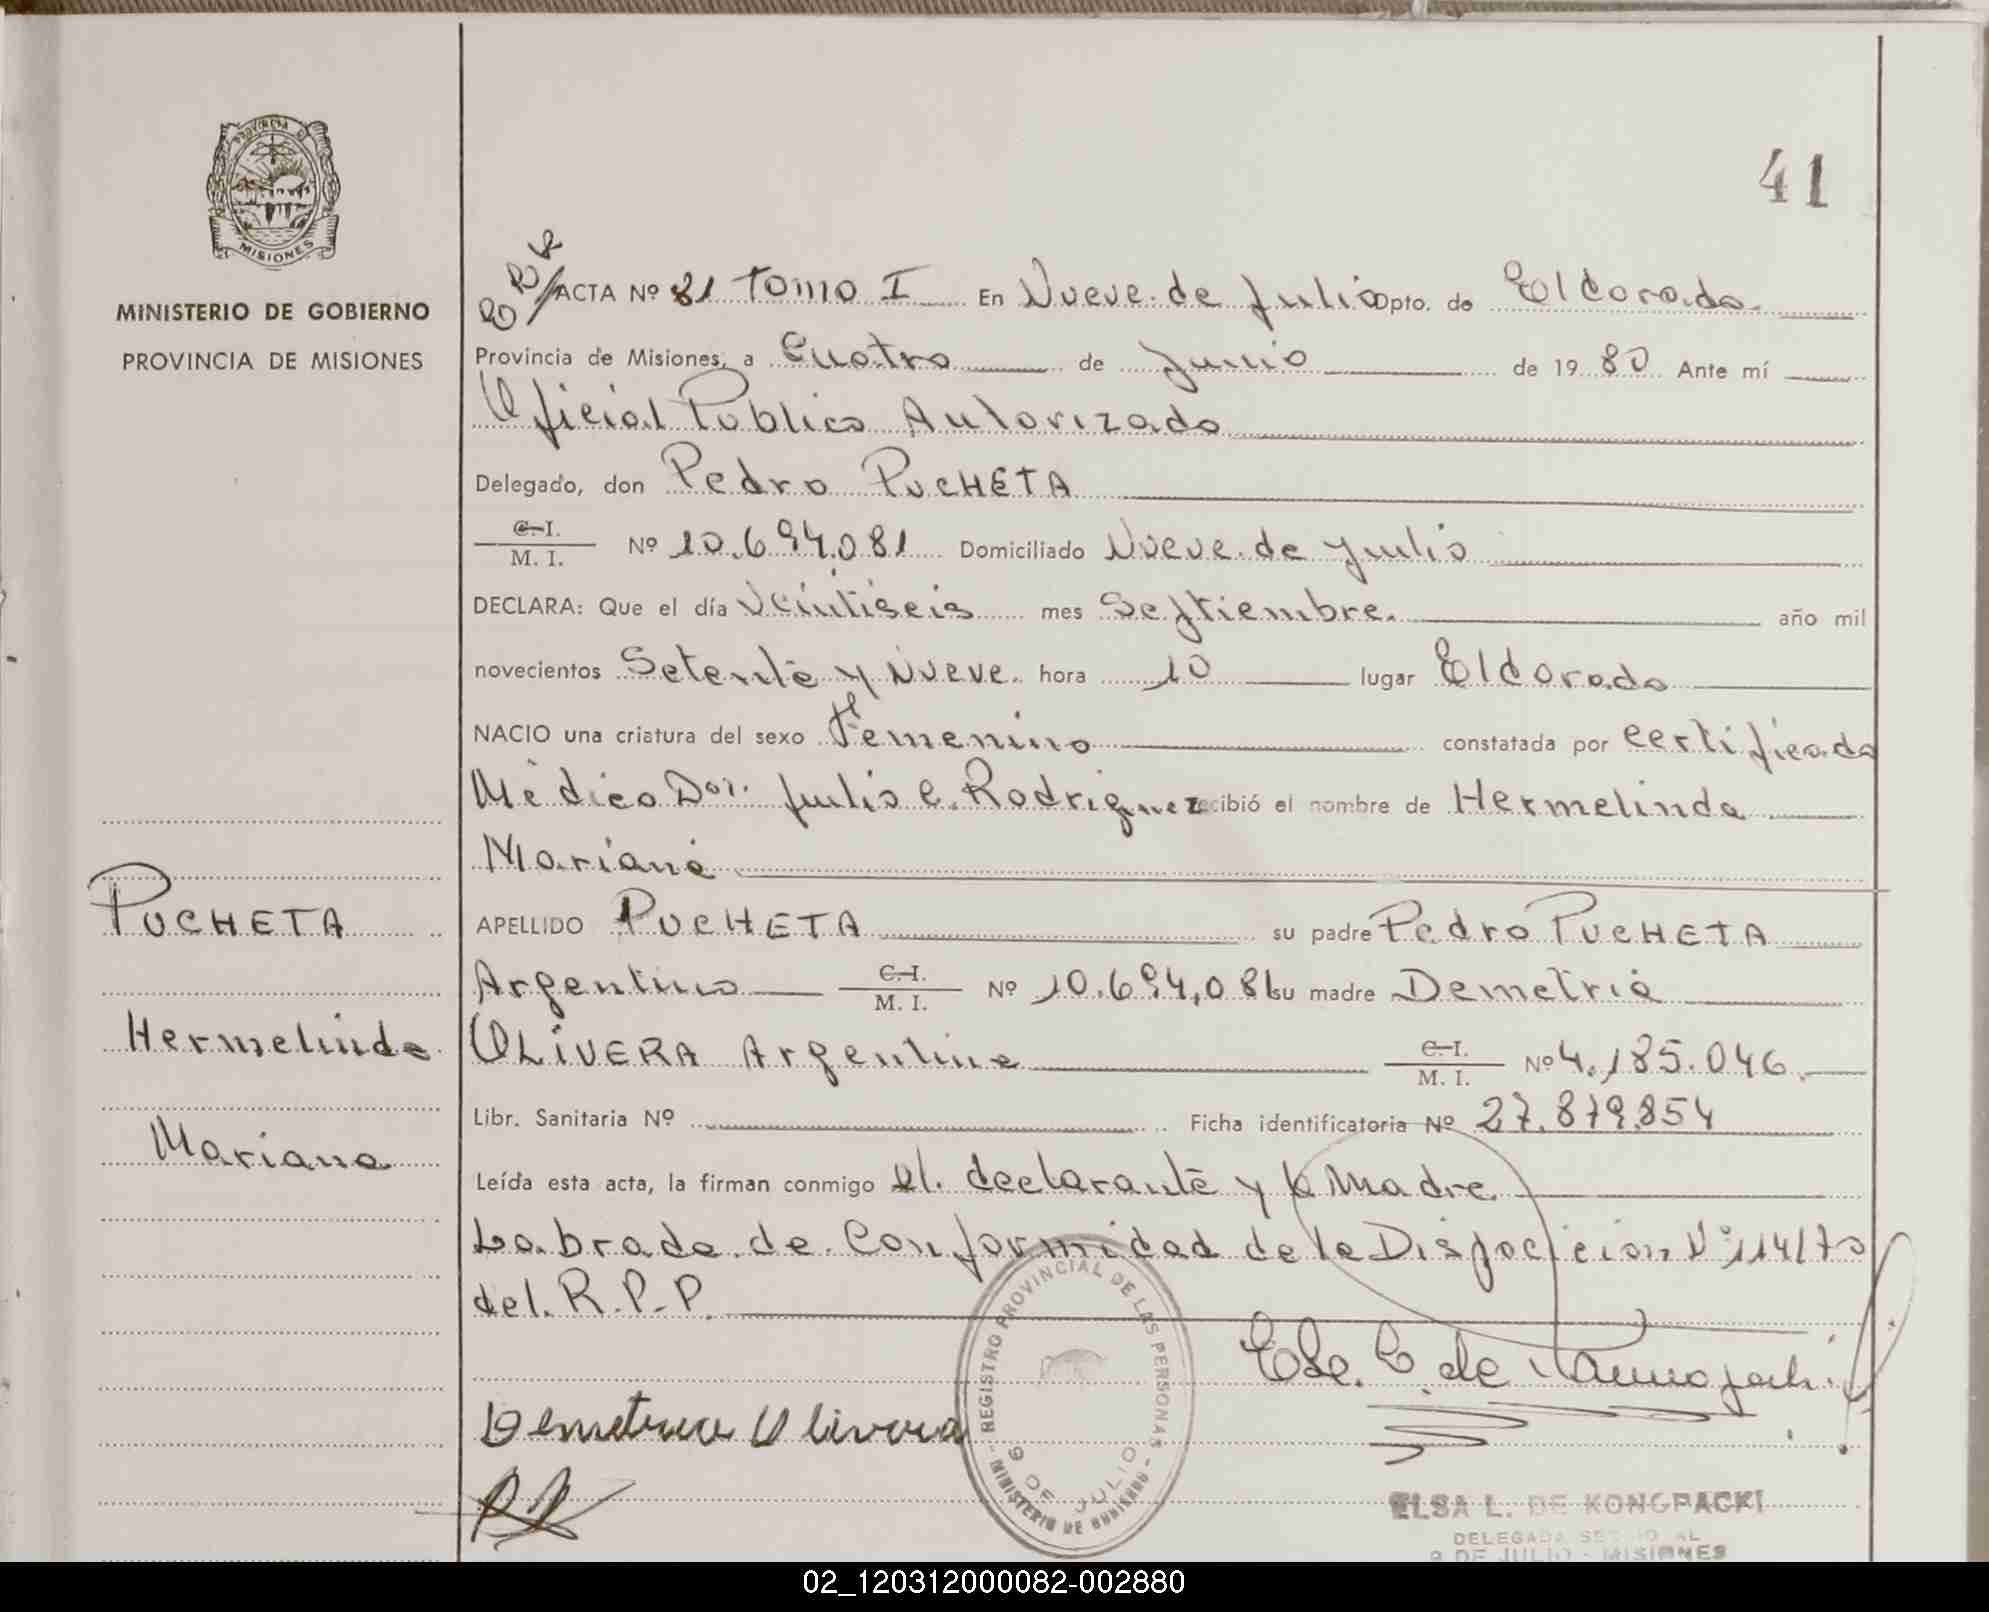 PROVINCIA DE
MISIONES
MINISTERIO DE GOBIERNO
PROVINCIA DE MISIONES
PUCHETA
Hermelinda
Mariana
41
ACTA Nº 81 Tomo I En Nueve de Julio Dpto. de Eldorado
Provincia de Misiones, a Cuatro de Junio de 1980 Ante mí
Oficial Público Autorizado
Delegado, don Pedro PUCHETA
C.I. / M. I. Nº 10.694.081 Domiciliado Nueve de Julio
DECLARA: Que el día Veintiseis mes Septiembre. año mil
novecientos Setenta y Nueve. hora 10 lugar Eldorado
NACIO una criatura del sexo Femenino constatada por certificado
Médico Dor. Julio C. Rodriguez recibió el nombre de Hermelinda
Mariana
APELLIDO PUCHETA su padre Pedro PUCHETA
Argentino C.I. / M. I. Nº 10.694,081 su madre Demetria
OLIVERA Argentina C.I. / M. I. Nº 4.185.046.
Libr. Sanitaria Nº Ficha identificatoria Nº 27.879.854
Leída esta acta, la firman conmigo el declarante y la Madre.
Labrada de Conformidad de la Dispocicion Nº 114/70
del R.P.P.
Demetria Olivera
REGISTRO PROVINCIAL DE LAS PERSONAS
MINISTERIO DE GOBIERNO
9 DE JULIO
ELSA L. DE KONOPACKI
DELEGADA
9 DE JULIO - MISIONES
02_120312000082-002880